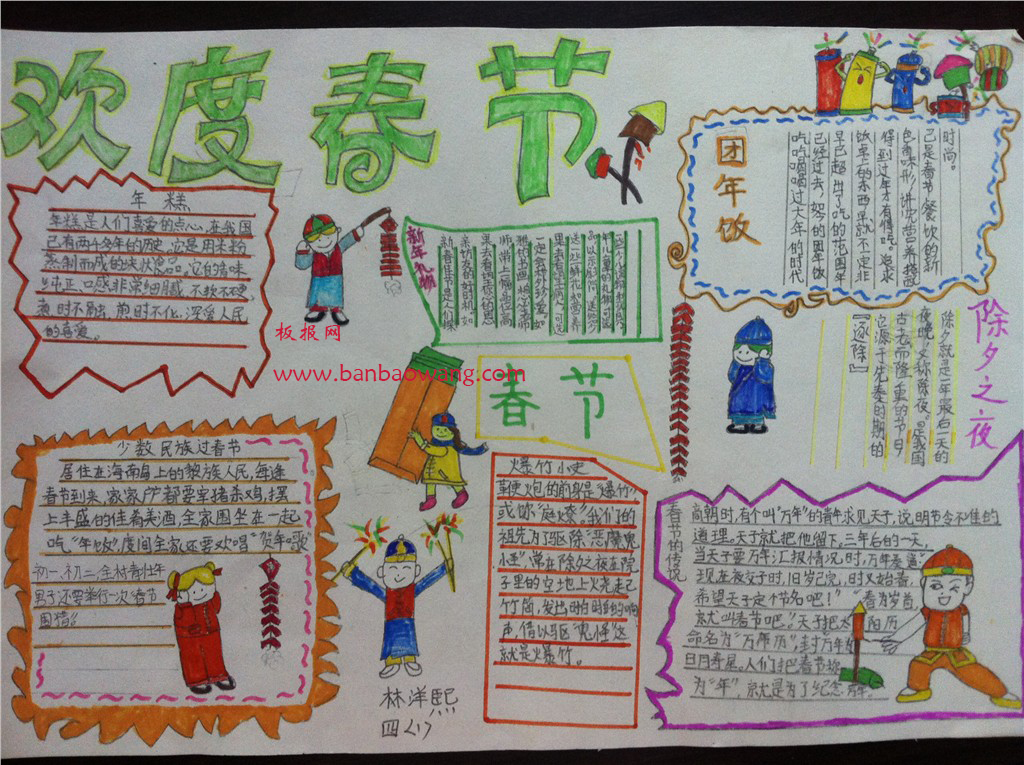 欢度春节
年糕
年糕是人们喜爱的点心,在我国
已有两千多年的历史,它是用米粉
蒸制而成的块状
纯正,口感非常细腻,不软不硬,
煎时不化,深受人民
的喜爱。
新年礼物
团年饭
时尚。
已是春节餐饮的新
色香味形,讲究营养搭配
得到过年才有得吃。追求
饭桌上的东西早就不定非
早已超出了吃的范围年
已经过去,如今的团年饭
吃吃喝喝过大年的时代
板报网
www.banbaowang.com
春节
除夕之夜
除夕就是一年最后一天的
夜晚,又称除夜。是我国
古老而隆重的节日,
它源于先秦时期的
『逐除』
少数民族过春节
居住在海南岛上的黎族人民,每逢
春节到来,家家户户都要宰猪杀鸡,摆
上丰盛的佳肴美酒,全家围坐在一起
吃“年饭”,席间全家还要欢唱“贺年歌”
初一、初二,全村青壮年
男子还要举行一次“春节
围猎”。
林洋熙
四(1)
爆竹小史
鞭炮的前身是“爆竹”
或你“庭燎”。我们的
祖先为了驱除“恶魔鬼
怪”,常在除夕之夜在院
子里的空地上火烧起
竹筒,发出啪啪的响
声,借以驱“鬼怪”这
就是爆竹。
春节的传说
商朝时,有个叫“万年”的青年求见天子,说明节令不准的
道理。天子就把他留下,三年后的一天,
当天子要万年汇报情况时,万年奏道:
现在夜交子时,旧岁已完,时又始春,
希望天子定个节名吧!”“春为岁首,
就叫春节吧。”天子把太阳历
命名为“万年历”,封万年为
日月寿星。人们把春节称
为“年”,就是为了纪念万年。